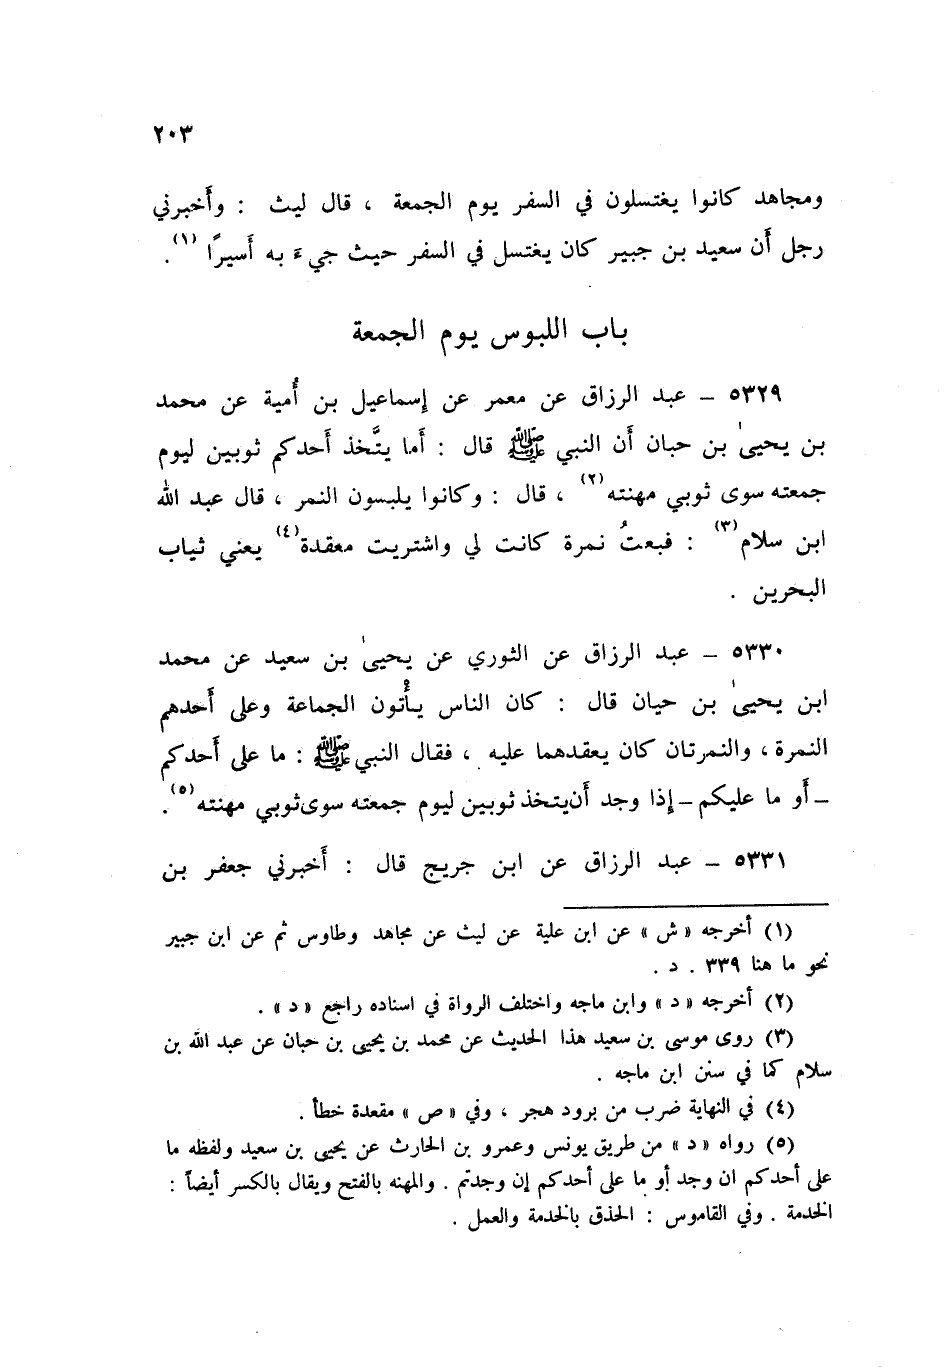 ٢٠٣
ومجاهد كانوا يغتسلون في السفر يوم الجمعة ، قال ليث : وأَخبرني
رجل أَن سعيد بن جبير كان يغتسل في السفر حيث جيءَ به أَسيرًا (١) .
باب اللبوس يوم الجمعة
٥٣٢٩ – عبد الرزاق عن معمر عن إسماعيل بن أُمية عن محمد
بن يحيىٰ بن حبان أَن النبي ﷺ قال : أَما يتَّخذ أَحدكم ثوبين ليوم
جمعته سوى ثوبي مهنته (٢) ، قال : وكانوا يلبسون النمر ، قال عبد الله
ابن سلام (٣) : فبعتُ نمرة كانت لي واشتريت معقدة (٤) يعني ثياب
البحرين .
٥٣٣٠ – عبد الرزاق عن الثوري عن يحيىٰ بن سعيد عن محمد
ابن يحيىٰ بن حيان قال : كان الناس يأْتون الجماعة وعلى أَحدهم
النمرة ، والنمرتان كان يعقدهما عليه ، فقال النبي ﷺ : ما على أَحدكم
– أَو ما عليكم – إذا وجد أَن يتخذ ثوبين ليوم جمعته سوى ثوبي مهنته (٥) .
٥٣٣١ – عبد الرزاق عن ابن جريج قال : أَخبرني جعفر بن
(١) أخرجه « ش » عن ابن علية عن ليث عن مجاهد وطاوس ثم عن ابن جبير
نحو ما هنا ٣٣٩ . د .
(٢) أخرجه « د » وابن ماجه واختلف الرواة في اسناده راجع « د » .
(٣) روى موسى بن سعيد هذا الحديث عن محمد بن يحيى بن حبان عن عبد الله بن
سلام كما في سنن ابن ماجه .
(٤) في النهاية ضرب من برود هجر ، وفي « ص » مقعدة خطأ .
(٥) رواه « د » من طريق يونس وعمرو بن الحارث عن يحيى بن سعيد ولفظه ما
على أحدكم ان وجد أو ما على أحدكم إن وجدتم . والمهنه بالفتح ويقال بالكسر أيضاً :
الخدمة . وفي القاموس : الحذق بالخدمة والعمل .